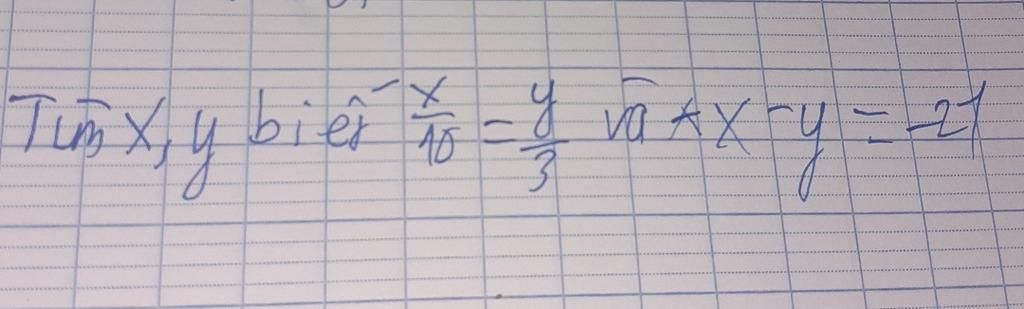 Tìm x, y biết x/10 = y/3 và x - y = -21